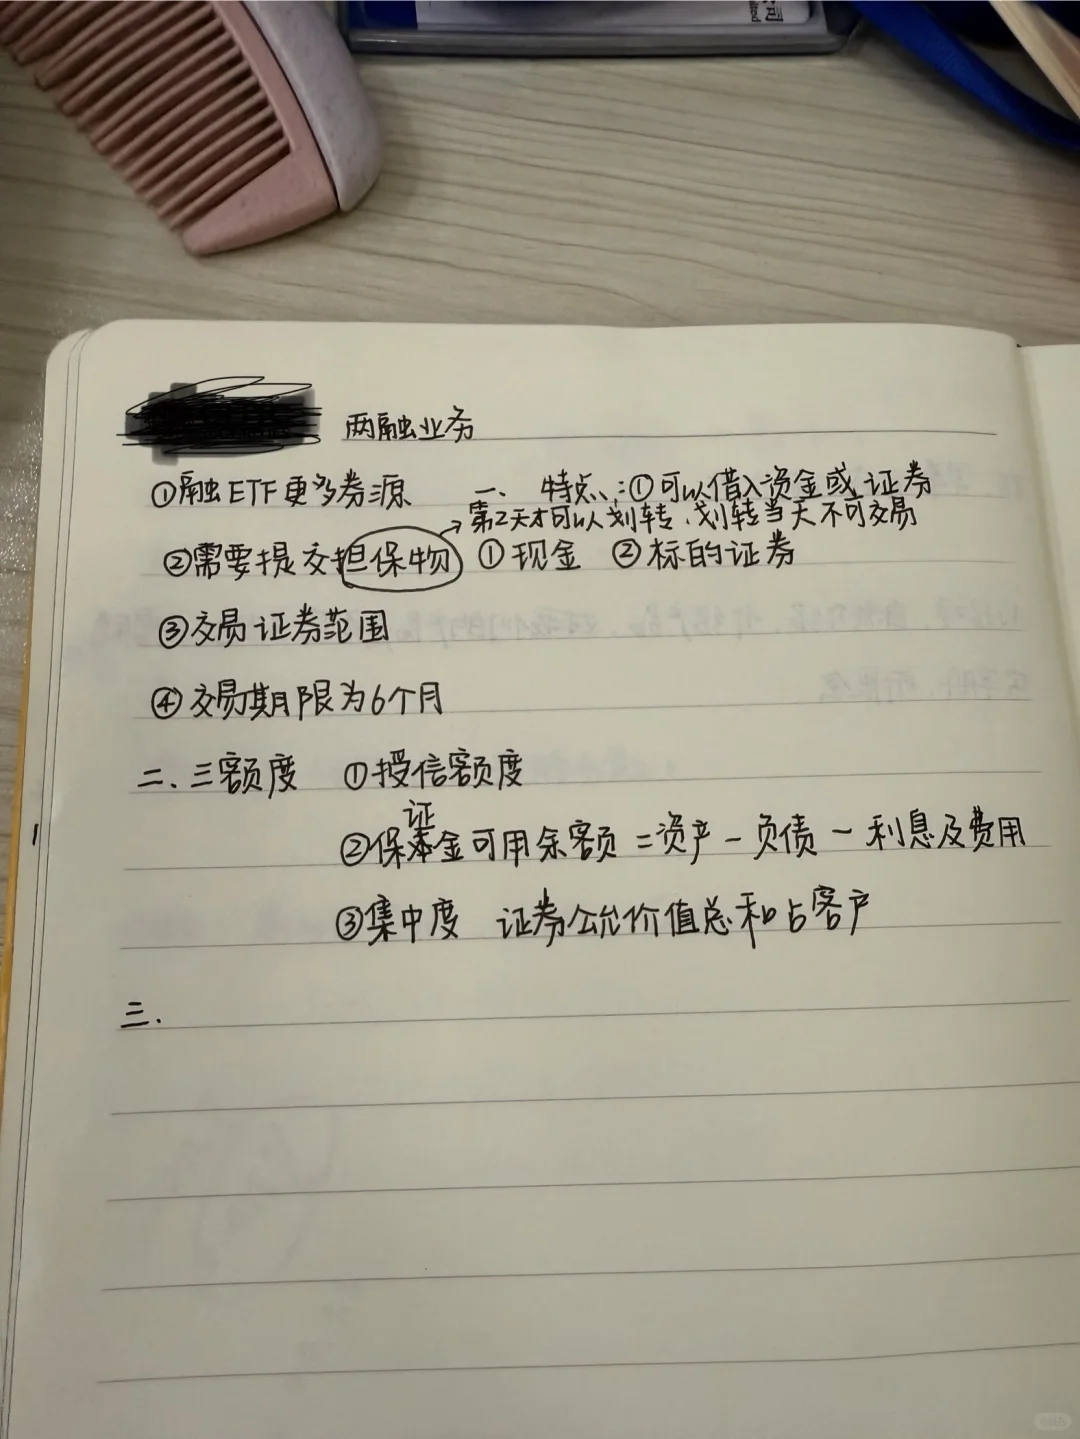 两融业务
①融ETF更多券源 一、特点：①可以借入资金或证券
第2天才可以划转、划转当天不可交易
②需要提交担保物 ①现金 ②标的证券
③交易证券范围
④交易期限为6个月
二、三额度 ①授信额度
②保证金可用余额=资产-负债-利息及费用
③集中度 证券公允价值总和占客户
三.